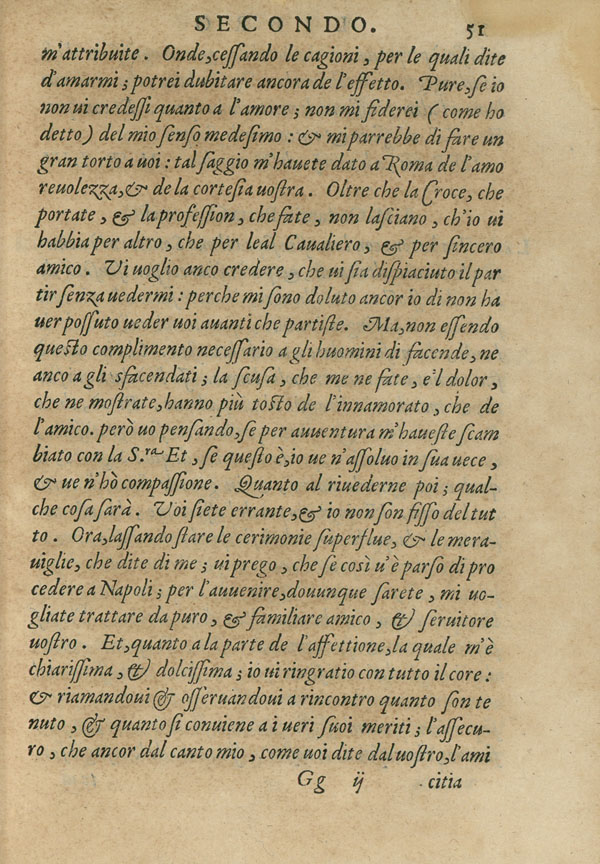 SECONDO. 51
m'attribuite. Onde, cessando le cagioni, per le quali dite
d'amarmi; potrei dubitare ancora de l'effetto. Pure, se io
non ui credessi quanto a l'amore; non mi fiderei (come ho
detto) del mio senso medesimo: & mi parrebbe di fare un
gran torto a uoi: tal saggio m'hauete dato a Roma de l'amo
reuolezza, & de la cortesia uostra. Oltre che la Croce, che
portate, & la profession, che fate, non lasciano, ch'io ui
habbia per altro, che per leal Caualiero, & per sincero
amico. Vi uoglio anco credere, che ui sia dispiaciuto il par
tir senza uedermi: perche mi sono doluto ancor io di non ha
uer possuto ueder uoi auanti che partiste. Ma, non essendo
questo complimento necessario a gli huomini di facende, ne
anco a gli sfacendati; la scusa, che me ne fate, e'l dolor,
che ne mostrate, hanno più tosto de l'innamorato, che de
l'amico. però uo pensando, se per auuentura m'haueste scam
biato con la S.ra Et, se questo è, io ue n'assoluo in sua uece,
& ue n'hò compassione. Quanto al riuederne poi; qual-
che cosa sarà. Voi siete errante, & io non son fisso del tut
to. Ora, lassando stare le cerimonie superflue, & le mera-
uiglie, che dite di me; ui prego, che se così u'è parso di pro
cedere a Napoli; per l'auuenire, douunque sarete, mi uo-
gliate trattare da puro, & familiare amico, & seruitore
uostro. Et, quanto a la parte de l'affettione, la quale m'è
chiarissima, & dolcissima; io ui ringratio con tutto il core:
& riamandoui & osseruandoui a rincontro quanto son te
nuto, & quanto si conuiene a i ueri suoi meriti; l'assecu-
ro, che ancor dal canto mio, come uoi dite dal uostro, l'ami
Gg ij citia